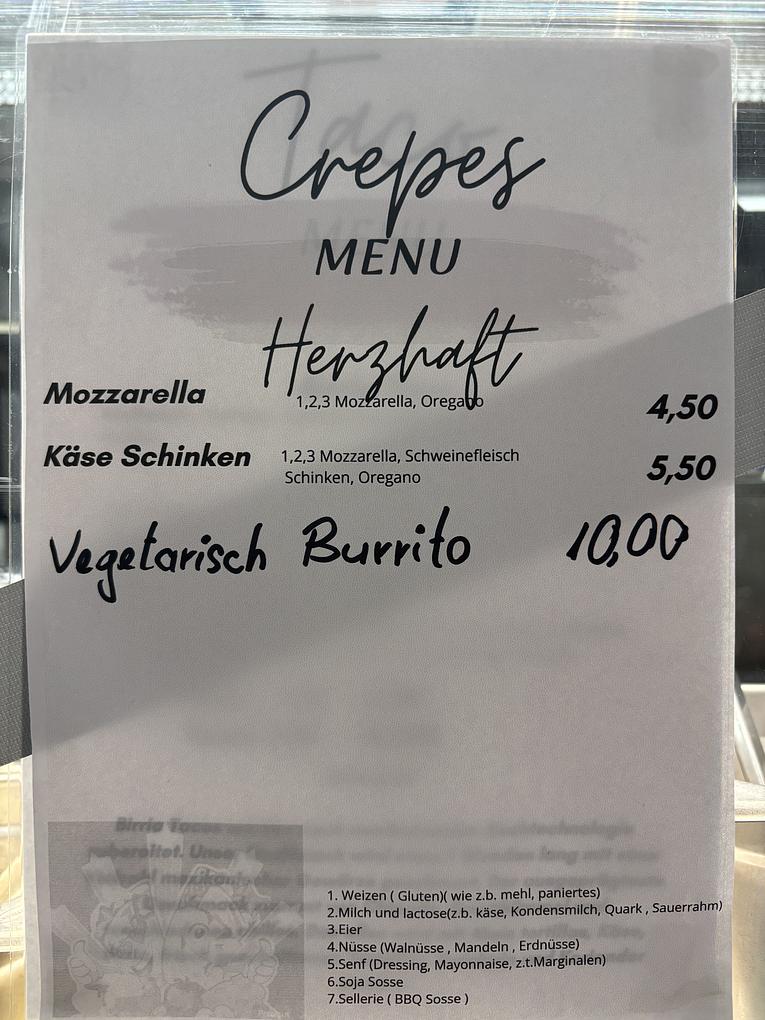 Taco
Crepes
MENU
MENU
Herzhaft
Mozzarella 1,2,3 Mozzarella, Oregano 4,50
Käse Schinken 1,2,3 Mozzarella, Schweinefleisch 5,50
Schinken, Oregano
Vegetarisch Burrito 10,00
Birria Tacos
1. Weizen ( Gluten)( wie z.b. mehl, paniertes)
2.Milch und lactose(z.b. käse, Kondensmilch, Quark , Sauerrahm)
3.Eier
4.Nüsse (Walnüsse , Mandeln , Erdnüsse)
5.Senf (Dressing, Mayonnaise, z.t.Marginalen)
6.Soja Sosse
7.Sellerie ( BBQ Sosse )